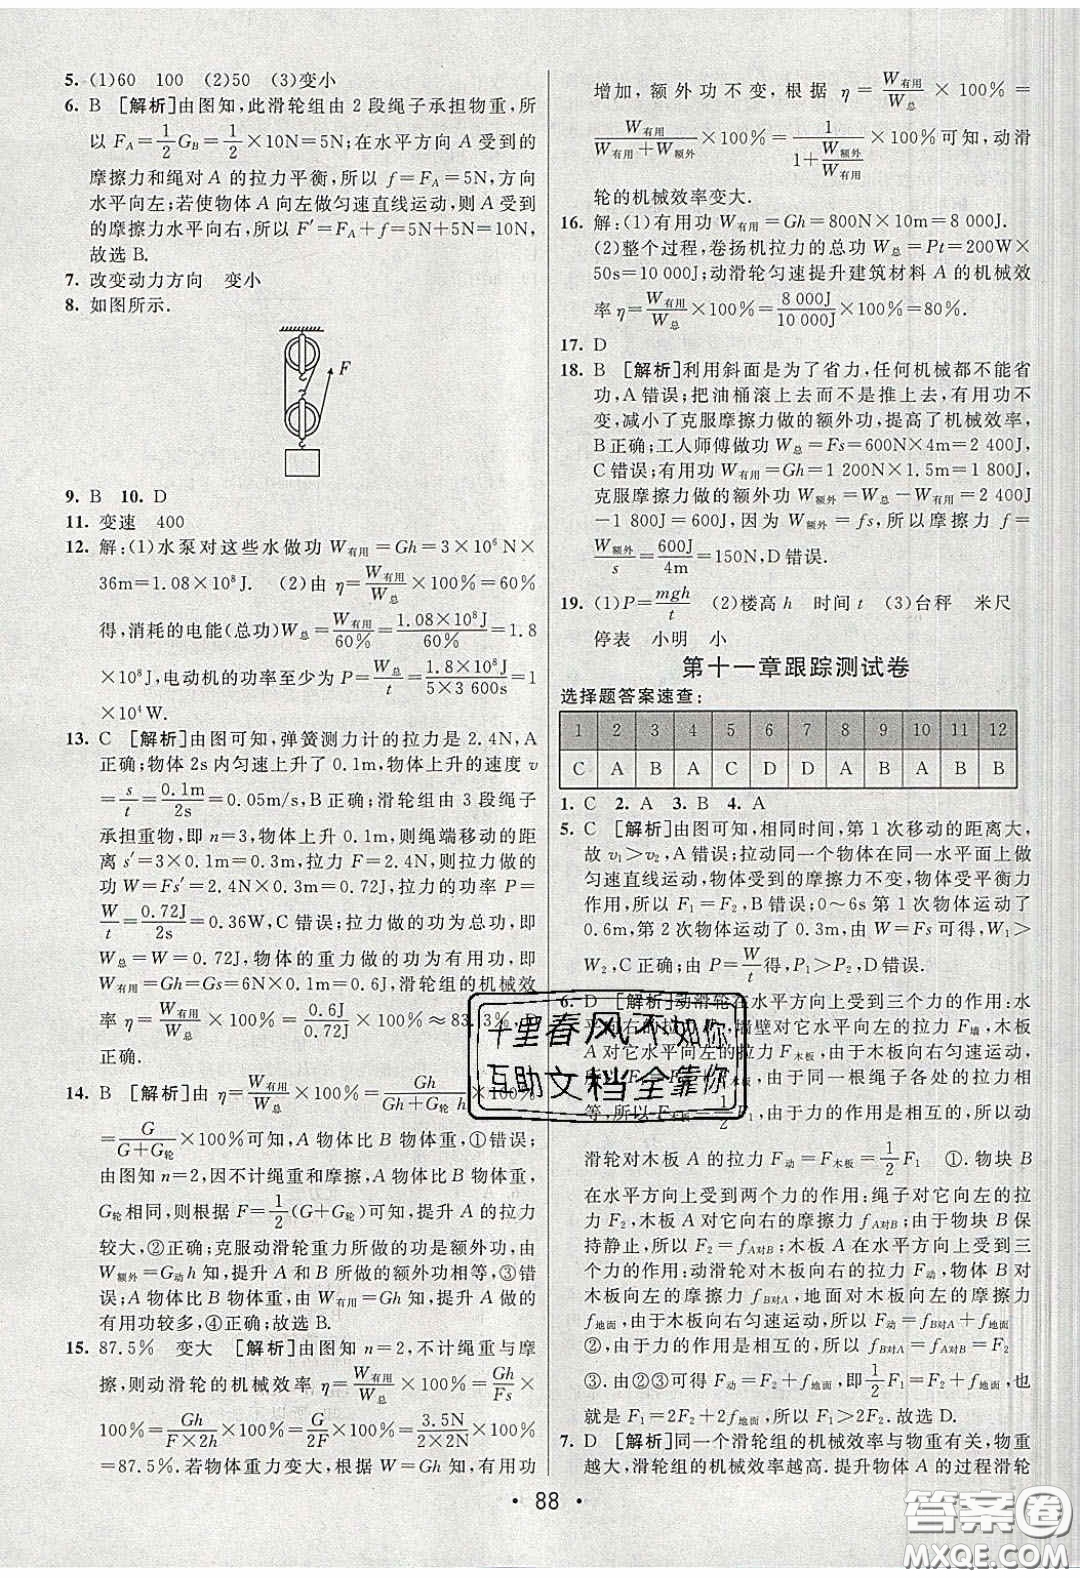 5. (1)60 100 (2)50 (3)变小
6. B [解析]由图知,此滑轮组由 2 段绳子承担物重,所
以 F_A=1/2 G_B=1/2×10N=5N;在水平方向 A 受到的
摩擦力和绳对 A 的拉力平衡,所以 f=F_A=5N,方向
水平向左;若使物体 A 向左做匀速直线运动,则 A 受到
的摩擦力水平向右,所以 F′=F_A+f=5N+5N=10N,
故选 B.
7. 改变动力方向 变小
8. 如图所示.
F
9. B 10. D
11. 变速 400
12. 解:(1)水泵对这些水做功 W有用=Gh=3×10⁶N×
36m=1.08×10⁸J. (2)由 η=W有用/W总×100%=60%
得,消耗的电能(总功)W总=W有用/60%=1.08×10⁸J/60%=1.8×
10⁸J,电动机的功率至少为 P=W总/t=1.8×10⁸J/5×3 600s=
1×10⁴W.
13. C [解析]由图可知,弹簧测力计的拉力是 2.4N,A
正确;物体 2s 内匀速上升了 0.1m,物体上升的速度 v
=s/t=0.1m/2s=0.05m/s,B 正确;滑轮组由 3 段绳子
承担重物,即 n=3,物体上升 0.1m,则绳端移动的距
离 s′=3×0.1m=0.3m,拉力 F=2.4N,则拉力做的
功 W=Fs′=2.4N×0.3m=0.72J,拉力的功率 P=
W/t=0.72J/2s=0.36W,C 错误;拉力做的功为总功,即
W总=W=0.72J,使用滑轮组做的功为有用功,即
W有用=Gh=Gs=6N×0.1m=0.6J,滑轮组的机械效
率 η=W有用/W总×100%=0.6J/0.72J×100%≈83.3%,D
正确.
14. B [解析]由 η=W有用/W总×100%=Gh/Gh+G轮h×100%
=G/G+G轮×100%可知,A 物体比 B 物体重,①错误;
由图知 n=2,因不计绳重和摩擦,A 物体比 B 物体重,
G轮相同,则根据 F=1/2(G+G轮)可知,提升 A 的拉力
较大,②正确;克服动滑轮重力所做的功是额外功,由
W额外=G动h 知,提升 A 和 B 所做的额外功相等,③错
误;A 物体比 B 物体重,由 W有用=Gh 知,提升 A 做的
有用功较多,④正确;故选 B.
15. 87.5% 变大 [解析]由图知 n=2,不计绳重与摩
擦,则动滑轮的机械效率 η=W有用/W总×100%=Gh/Fs×
100%=Gh/F×2h×100%=G/2F×100%=3.5N/2×2N×100%
=87.5%.若物体重力变大,根据 W=Gh 知,有用功
增加,额外功不变,根据 η=W有用/W总×100%=
W有用/W有用+W额外×100%=1/1+W额外/W有用×100%可知,动滑
轮的机械效率变大.
16. 解:(1)有用功 W有用=Gh=800N×10m=8 000J.
(2)整个过程,卷扬机拉力的总功 W总=Pt=200W×
50s=10 000J;动滑轮匀速提升建筑材料 A 的机械效
率 η=W有用/W总×100%=8 000J/10 000J×100%=80%.
17. D
18. B [解析]利用斜面是为了省力,任何机械都不能省
功,A 错误;把油桶滚上去而不是推上去,有用功不
变,减小了克服摩擦力做的额外功,提高了机械效率,
B 正确;工人师傅做功 W总=Fs=600N×4m=2 400J,
C 错误;有用功 W有用=Gh=1 200N×1.5m=1 800J,
克服摩擦力做的额外功 W额外=W总-W有用=2 400J
-1 800J=600J,因为 W额外=fs,所以摩擦力 f=
W额外/s=600J/4m=150N,D 错误.
19. (1)P=mgh/t (2)楼高 h 时间 t (3)台秤 米尺
停表 小明 小
第十一章跟踪测试卷
选择题答案速查:
1 2 3 4 5 6 7 8 9 10 11 12
C A B A C D D A B A B A
1. C 2. A 3. B 4. A
5. C [解析]由图可知,相同时间,第 1 次移动的距离大,
故 v₁>v₂,A 错误;拉动同一个物体在同一水平面上做
匀速直线运动,物体受到的摩擦力不变,物体受平衡力
作用,所以 F₁=F₂,B 错误;0~6s 第 1 次物体运动了
0.6m,第 2 次物体运动了 0.3m,由 W=Fs 可得,W₁>
W₂,C 正确;由 P=W/t得,P₁>P₂,D 错误.
6. D [解析]动滑轮在水平方向上受到三个力的作用:水
平向右的拉力 F₁,墙壁对它水平向左的拉力 F墙,木板
A 对它水平向左的拉力 F木板;由于木板向右匀速运动,
所以 F₁=F墙+F木板;由于同一根绳子各处的拉力相
等,所以 F墙=F木板=1/2F₁,由于力的作用是相互的,所以动
滑轮对木板 A 的拉力 F动=F木板=1/2F₁ ①.物块 B
在水平方向上受到两个力的作用:绳子对它向左的拉
力 F₂,木板 A 对它向右的摩擦力 f_A对B;由于物块 B 保
持静止,所以 F₂=f_A对B;木板 A 在水平方向上受到三
个力的作用:动滑轮对木板向右的拉力 F动,物块 B 对
木板向左的摩擦力 f_B对A,地面对木板向左的摩擦力 f地面;
由于木板向右匀速运动,所以 F动=f_B对A+f地面
②,由于力的作用是相互的,所以 f_B对A=f_A对B=F₂
③.由②③可得 F动=F₂+f地面,即1/2F₁=F₂+f地面,也
就是 F₁=2F₂+2f地面.故选 D.
7. D [解析]同一个滑轮组的机械效率与物重有关,物重
越大,滑轮组的机械效率越高.提升物体 A 的过程滑轮
· 88 ·
十里春风不如你
互助文档全靠你
答案圈
MXQE.COM